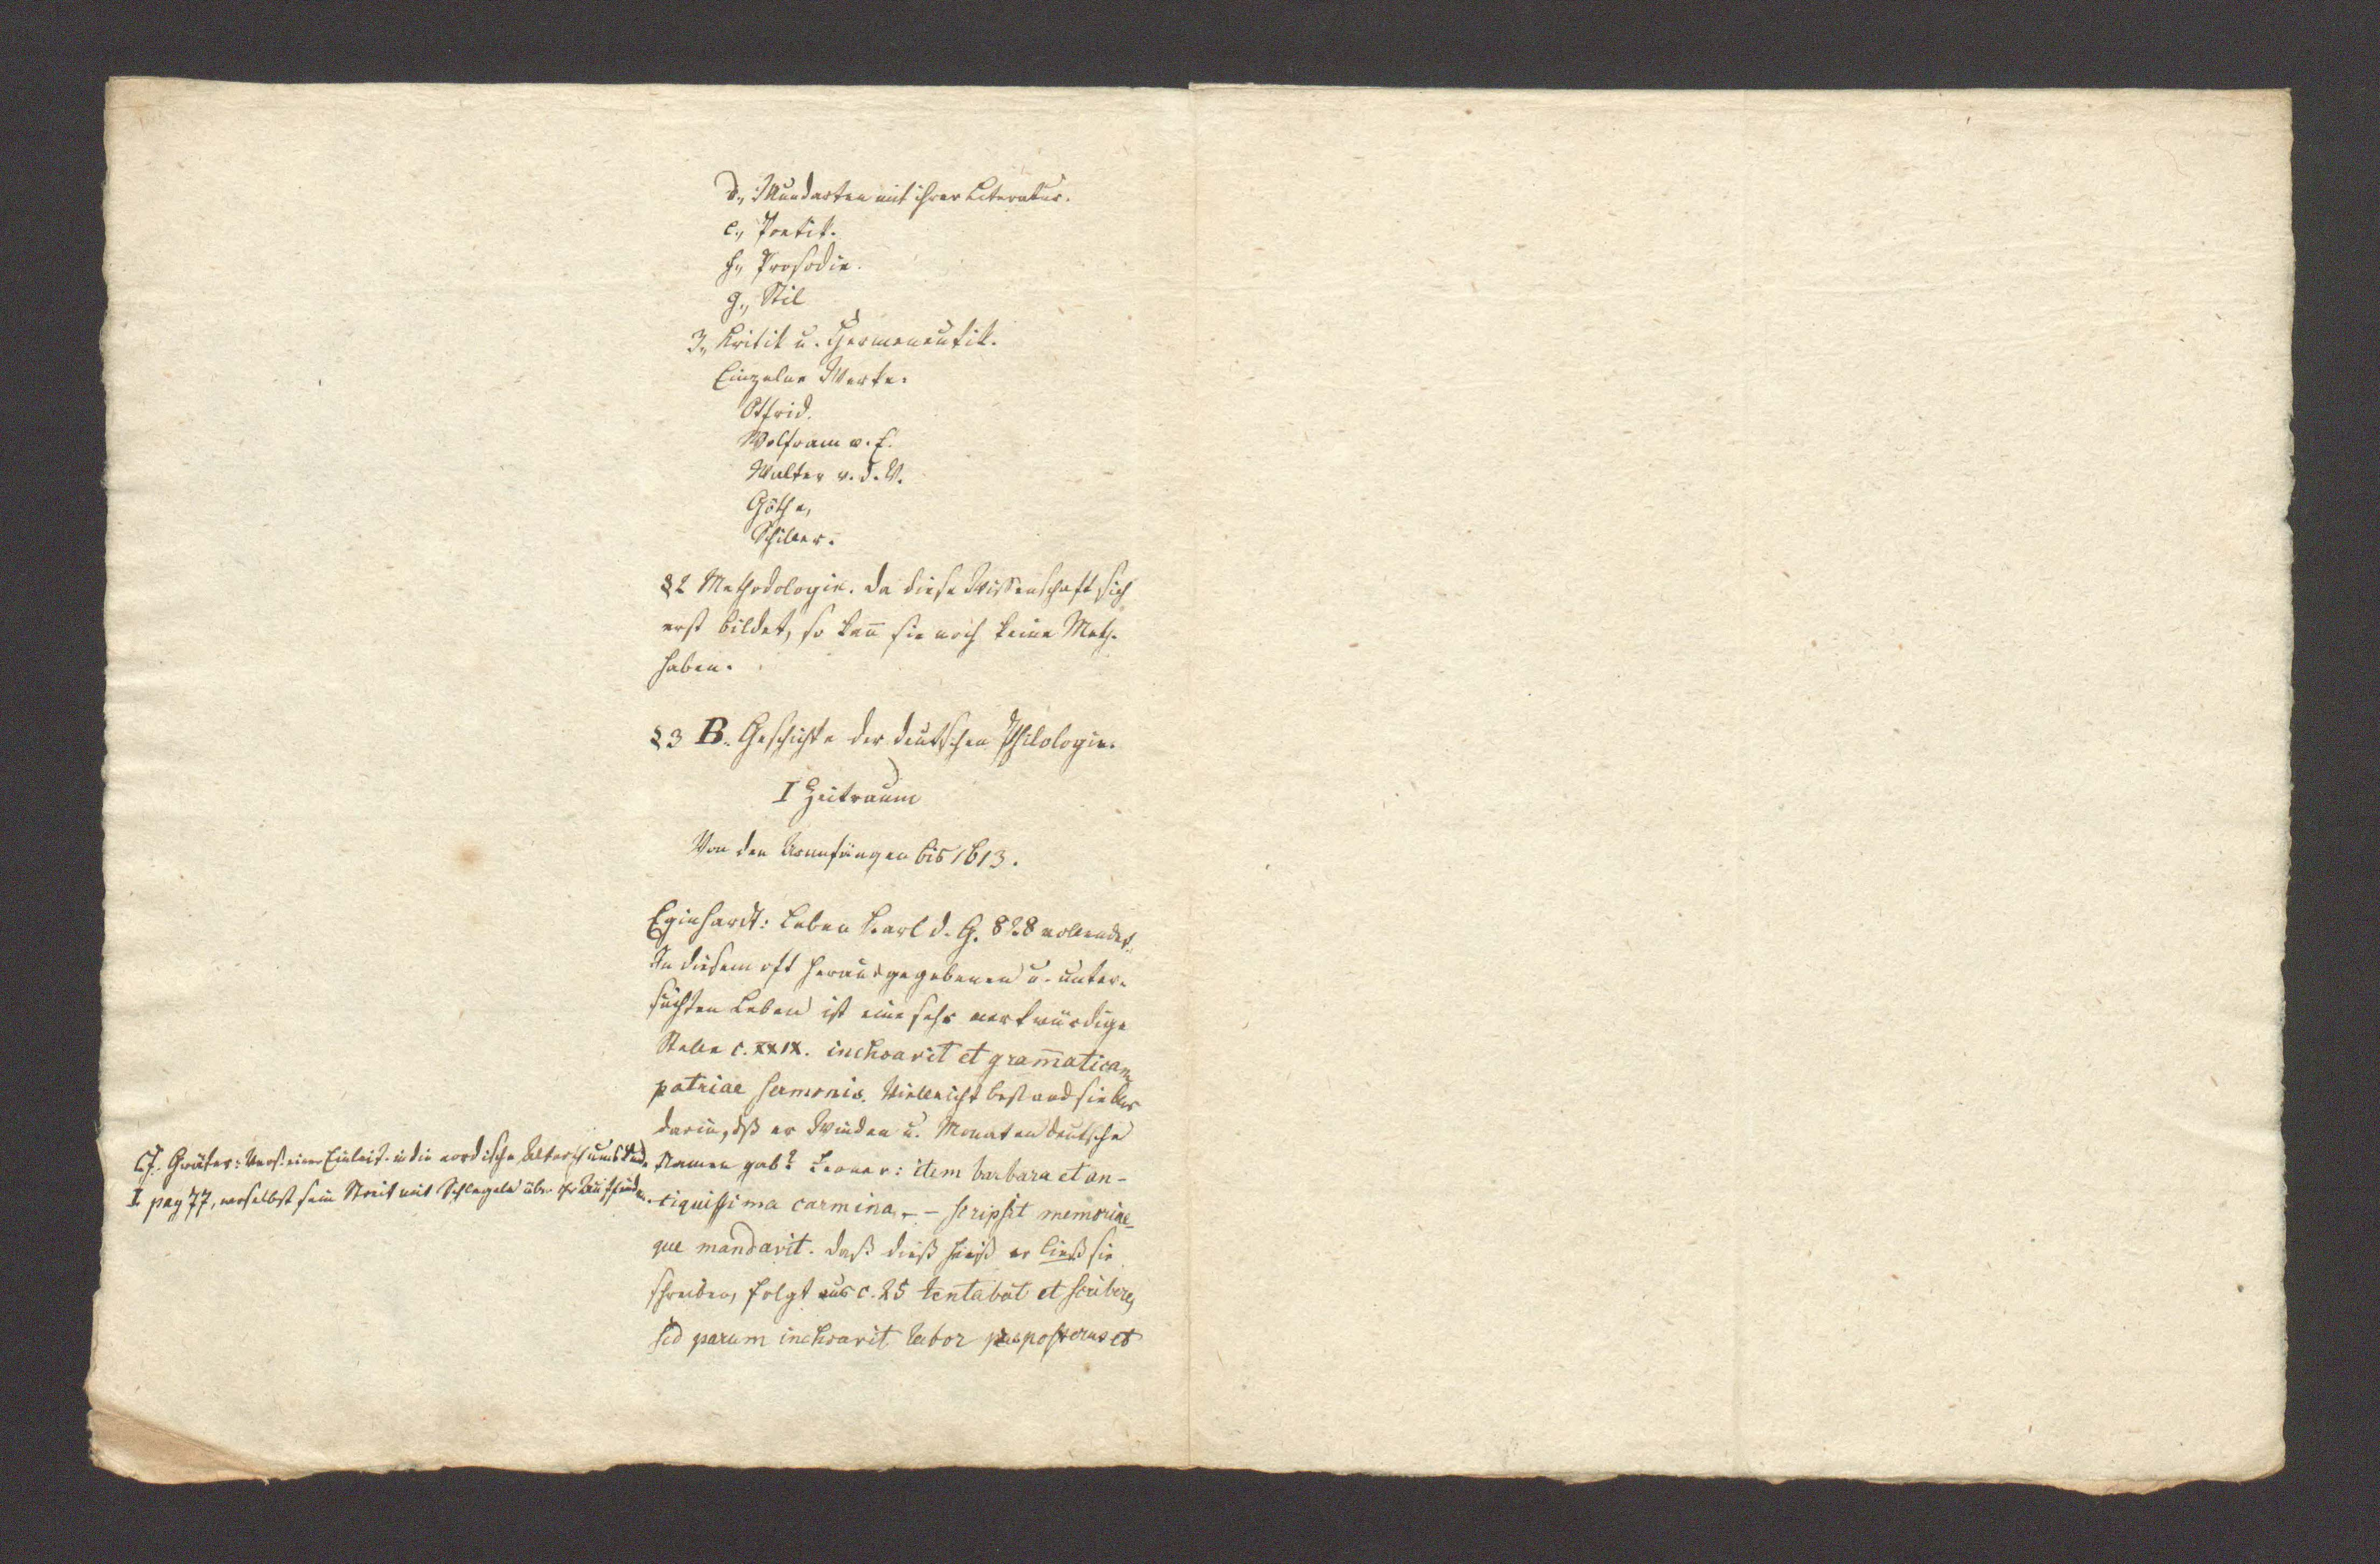 d., Mundarten mit ihrer Literatur.
e., Poetik.
f., Prosodie.
g., Stil
3., Kritik u. Hermeneutik.
Einzelne Werke.
Otfrid.
Wolfram v. E.
Walter v. d. V.
Göthe,
Schiller.
§2 Methodologie. Da diese Wissenschaft sich
erst bildet, so kan̄ sie noch keine Meth.
haben.
§3 B. Geschichte der deutschen Philologie.
I Zeitraum
Von den Uranfängen bis 1613.
Eginhardt: Leben Karl d. G. 828 vollendet.
In diesem oft herausgegebenen u. unter-
suchten Leben ist eine sehr merkwürdige
Stelle c. XXIX. inchoavit et gram̄aticam
patriae sermonis. Vielleicht bestand sie blos
darin, dß er Winden u. Monaten deutsche
Namen gab? Ferner: item barbara et an-
tiquissima carmina, – – scripsit memoriae-
que mandavit. Daß dieß heiß er ließ sie
schreiben, folgt aus c. 25 tentabat et scribere,
sed parum inchoavit labor praeposterus et
Cf. Gräter: Vers. einer Einleit. in die nordische Alterthumskunde
I. pag 77, woselbst sein Streit mit Schlegeln über ihr Auffinden.